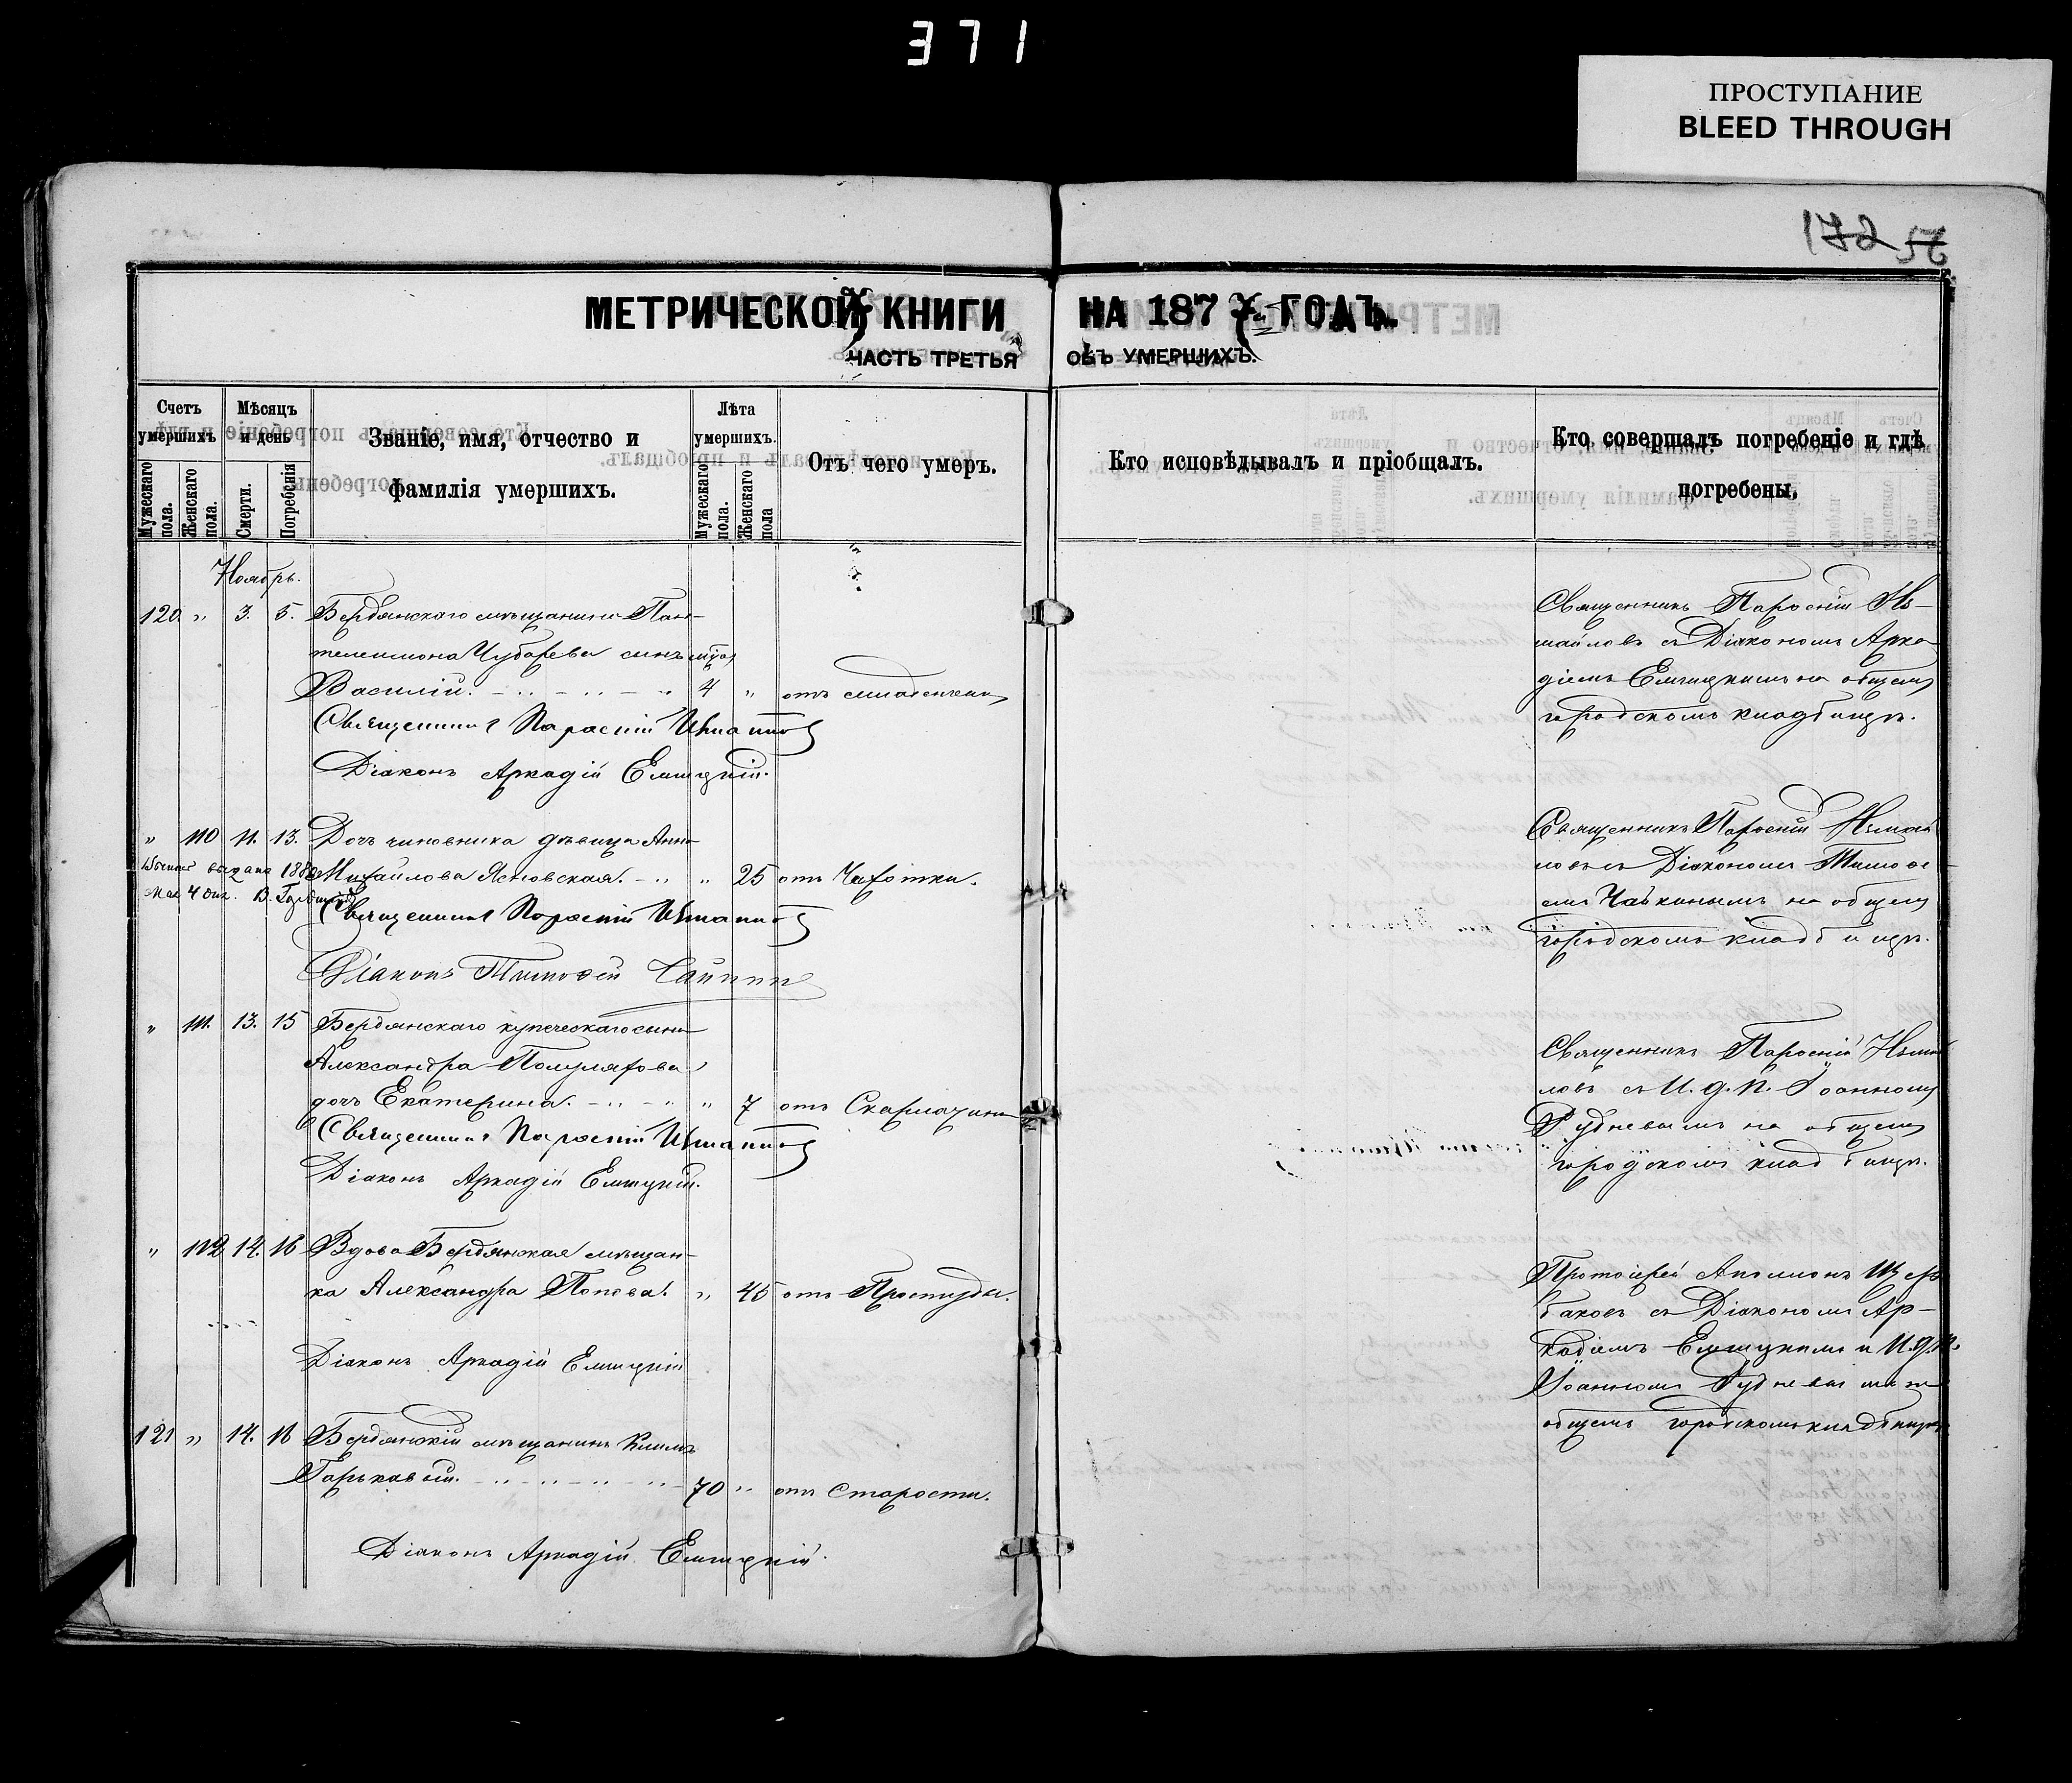 371
ПРОСТУПАНИЕ
BLEED THROUGH
172 56
МЕТРИЧЕСКОЙ КНИГИ НА 187 ГОДЪ.
ЧАСТЬ ТРЕТЬЯ ОБЪ УМЕРШИХЪ.
Счетъ умершихъ
Мужескаго пола.
Женскаго пола.
Мѣсяцъ и день
Смерти.
Погребенія
Званіе, имя, отчество и
фамилія умершихъ.
Лѣта умершихъ.
Мужескаго пола.
Женскаго пола
Отъ чего умеръ.
Кто исповѣдывалъ и пріобщалъ.
Кто совершалъ погребеніе и гдѣ
погребены.
Ноябрь.
120 " 3. 5. Бердянскаго мѣщанина Пан-
телеимона Чубарева сынъ
Василій. 4 " отъ
Священникъ Парѳеній
Діаконъ Аркадій
Священникъ Парѳеній
съ Діакономъ Арка
діемъ на общемъ
городскомъ кладбищѣ.
" 110 11. 13. Дочь чиновника дѣвица Анна
Михайлова Ясновская. " 25 отъ Чахотки.
выдана 188
Мая 4 дня.
Священникъ Парѳеній
Діаконъ Тимоѳей
Священникъ Парѳеній
Діакономъ Тимоѳе-
емъ на общемъ
городскомъ кладбищѣ.
" 111. 13. 15 Бердянскаго купеческаго сына
Александра
дочь Екатерина. " 7 отъ Скарлатины
Священникъ Парѳеній
Діаконъ Аркадій
Священникъ Парѳеній
съ И. д. п. Іоанномъ
Рудневымъ на общемъ
городскомъ кладбищѣ.
" 112 14. 16 Вдова Бердянская мѣщан-
ка Александра Попова. " 45 отъ Простуды.
Діаконъ Аркадій
Протоіерей Щер
баковъ съ Діакономъ Ар-
кадіемъ и И. д. п.
Іоанномъ Рудневымъ на
общемъ городскомъ кладбищѣ
121 " 14. 16 Бердянскій мѣщанинъ Климъ
70 " отъ Старости.
Діаконъ Аркадій